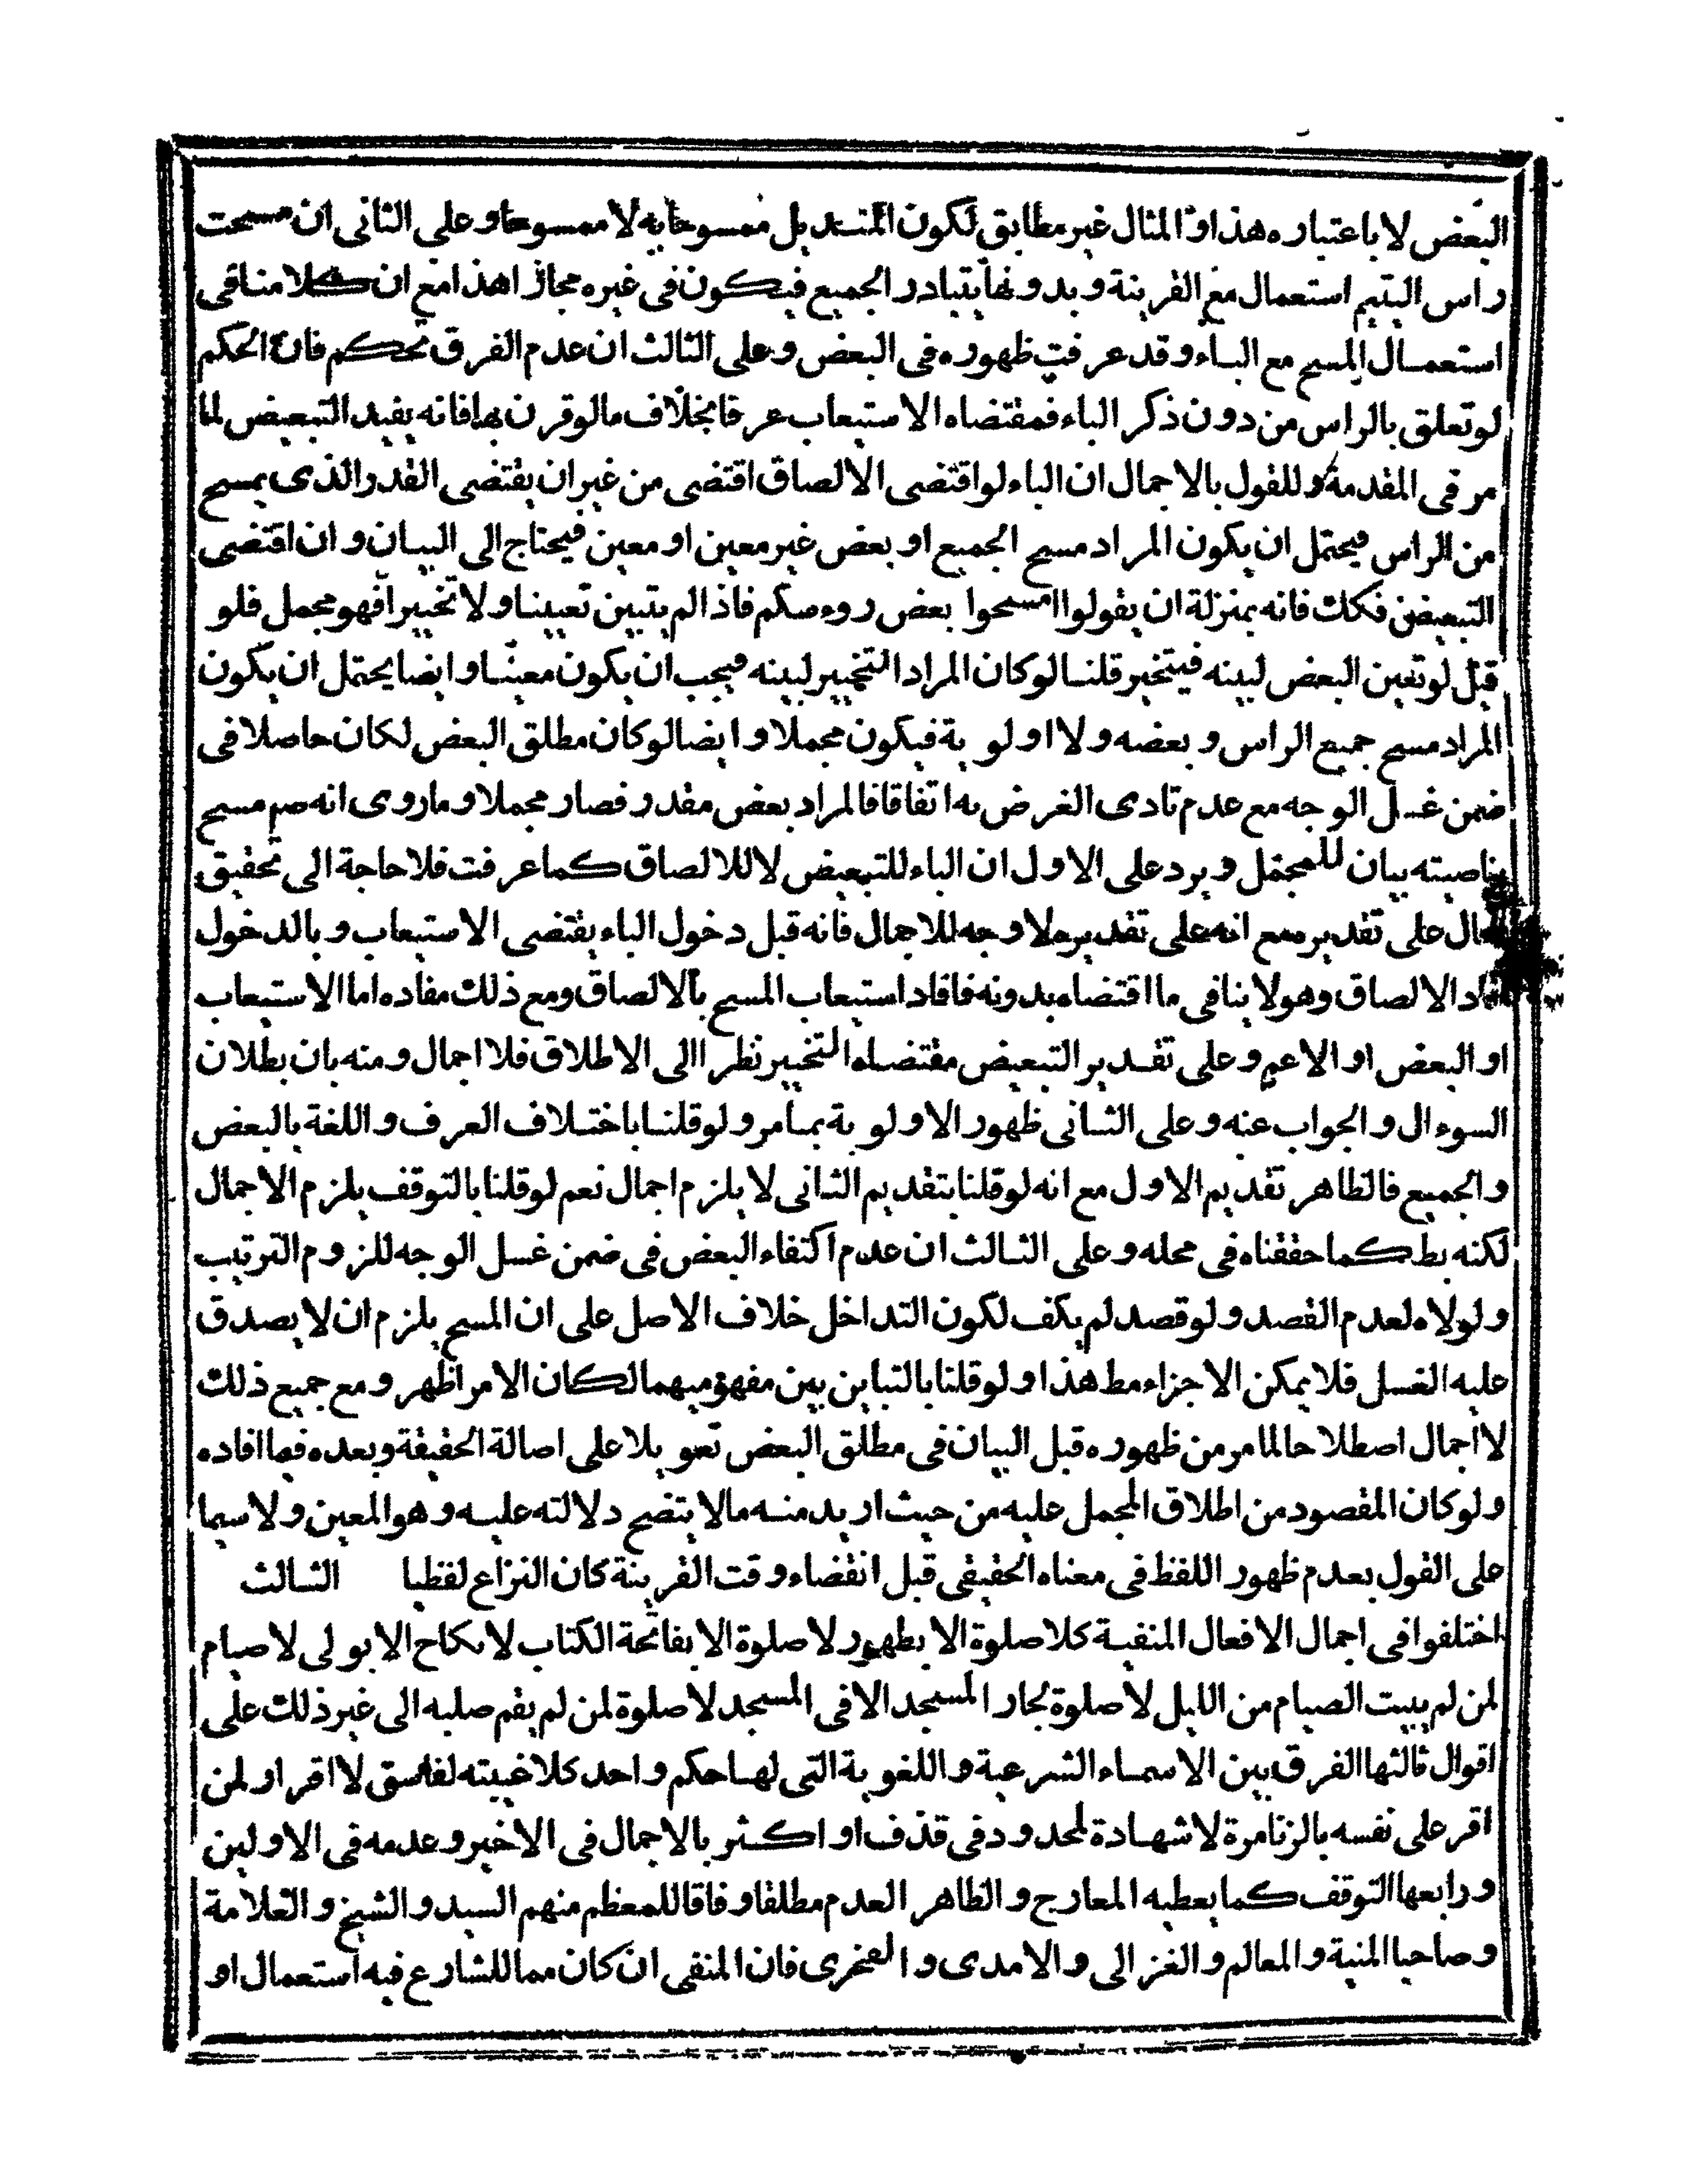 البعض لا باعتباره هذا و المثال غير مطابق لكون المنديل ممسوحا به لا ممسوحا و على الثانى ان مسحت
راس اليتيم استعمال مع القرينة و بدونها يتبادر الجميع فيكون فى غيره مجازا هذا مع ان كلامنا فى
استعمال المسح مع الباء و قد عرفت ظهوره فى البعض و على الثالث ان عدم الفرق تحكم فان الحكم
لو تعلق بالراس من دون ذكر الباء فمقتضاه الاستيعاب عرفا بخلاف ما لو قرن بها فانه يفيد التبعيض لما
مر فى المقدمة و للقول بالاجمال ان الباء لو اقتضى الالصاق اقتضى من غير ان يقتضى القدر الذى يمسح
من الراس فيحتمل ان يكون المراد مسح الجميع او بعض غير معين او معين فيحتاج الى البيان و ان اقتضى
التبعيض فكك فانه بمنزلة ان يقولوا امسحوا بعض روءسكم فاذا لم يتبين تعيينا و لا تخييرا فهو مجمل فلو
قيل لو تعين البعض لبينه فيتخير قلنا لو كان المراد التخيير لبينه فيجب ان يكون معينا و ايضا يحتمل ان يكون
المراد مسح جميع الراس و بعضه و لا اولوية فيكون مجملا و ايضا لو كان مطلق البعض لكان حاصلا فى
ضمن غسل الوجه مع عدم تادى الغرض به اتفاقا فالمراد بعض مقدر فصار مجملا و ما روى انه صم مسح
بناصيته بيان للمجمل و يرد على الاول ان الباء للتبعيض لا للالصاق كما عرفت فلا حاجة الى تحقيق
على تقدير مع انه على تقديره لا وجه للاجمال فانه قبل دخول الباء يقتضى الاستيعاب و بالدخول
الالصاق و هو لا ينافى ما اقتضاه بدونه فافاد استيعاب المسح بالالصاق و مع ذلك مفاده اما الاستيعاب
او البعض او الاعم و على تقدير التبعيض مقتضاه التخيير نظرا الى الاطلاق فلا اجمال و منه بان بطلان
السوءال و الجواب عنه و على الثانى ظهور الاولوية بما مر و لو قلنا باختلاف العرف و اللغة بالبعض
و الجميع فالظاهر تقديم الاول مع انه لو قلنا بتقديم الثانى لا يلزم اجمال نعم لو قلنا بالتوقف يلزم الاجمال
لكنه بط كما حققناه فى محله و على الثالث ان عدم اكتفاء البعض فى ضمن غسل الوجه للزوم الترتيب
و لولاه لعدم القصد و لو قصد لم يكف لكون التداخل خلاف الاصل على ان المسح يلزم ان لا يصدق
عليه الغسل فلا يمكن الاجزاء مط هذا و لو قلنا بالتباين بين مفهوميهما لكان الامر اظهر و مع جميع ذلك
لا اجمال اصطلاحا لما مر من ظهوره قبل البيان فى مطلق البعض تعويلا على اصالة الحقيقة و بعده فيما افاده
و لو كان المقصود من اطلاق المجمل عليه من حيث اريد منه ما لا يتضح دلالته عليه و هو المعين و لا سيما
على القول بعدم ظهور اللفظ فى معناه الحقيقى قبل انقضاء وقت القرينة كان النزاع لفظيا الثالث
اختلفوا فى اجمال الافعال المنفية كلا صلوة الا بطهور لا صلوة الا بفاتحة الكتاب لا نكاح الا بولى لا صيام
لمن لم يبيت الصيام من الليل لا صلوة لجار المسجد الا فى المسجد لا صلوة لمن لم يقم صلبه الى غير ذلك على
اقوال ثالثها الفرق بين الاسماء الشرعية و اللغوية التى لها حكم واحد كلا غيبته لفاسق لا اقرار لمن
اقر على نفسه بالزنا مرة لا شهادة لمحدود فى قذف او اكثر بالاجمال فى الاخير و عدمه فى الاولين
و رابعها التوقف كما يعطيه المعارج و الظاهر العدم مطلقا وفاقا للمعظم منهم السيد و الشيخ و العلامة
و صاحبا المنية و المعالم و الغزالى و الامدى و الفخرى فان المنفى ان كان مما للشارع فيه استعمال او